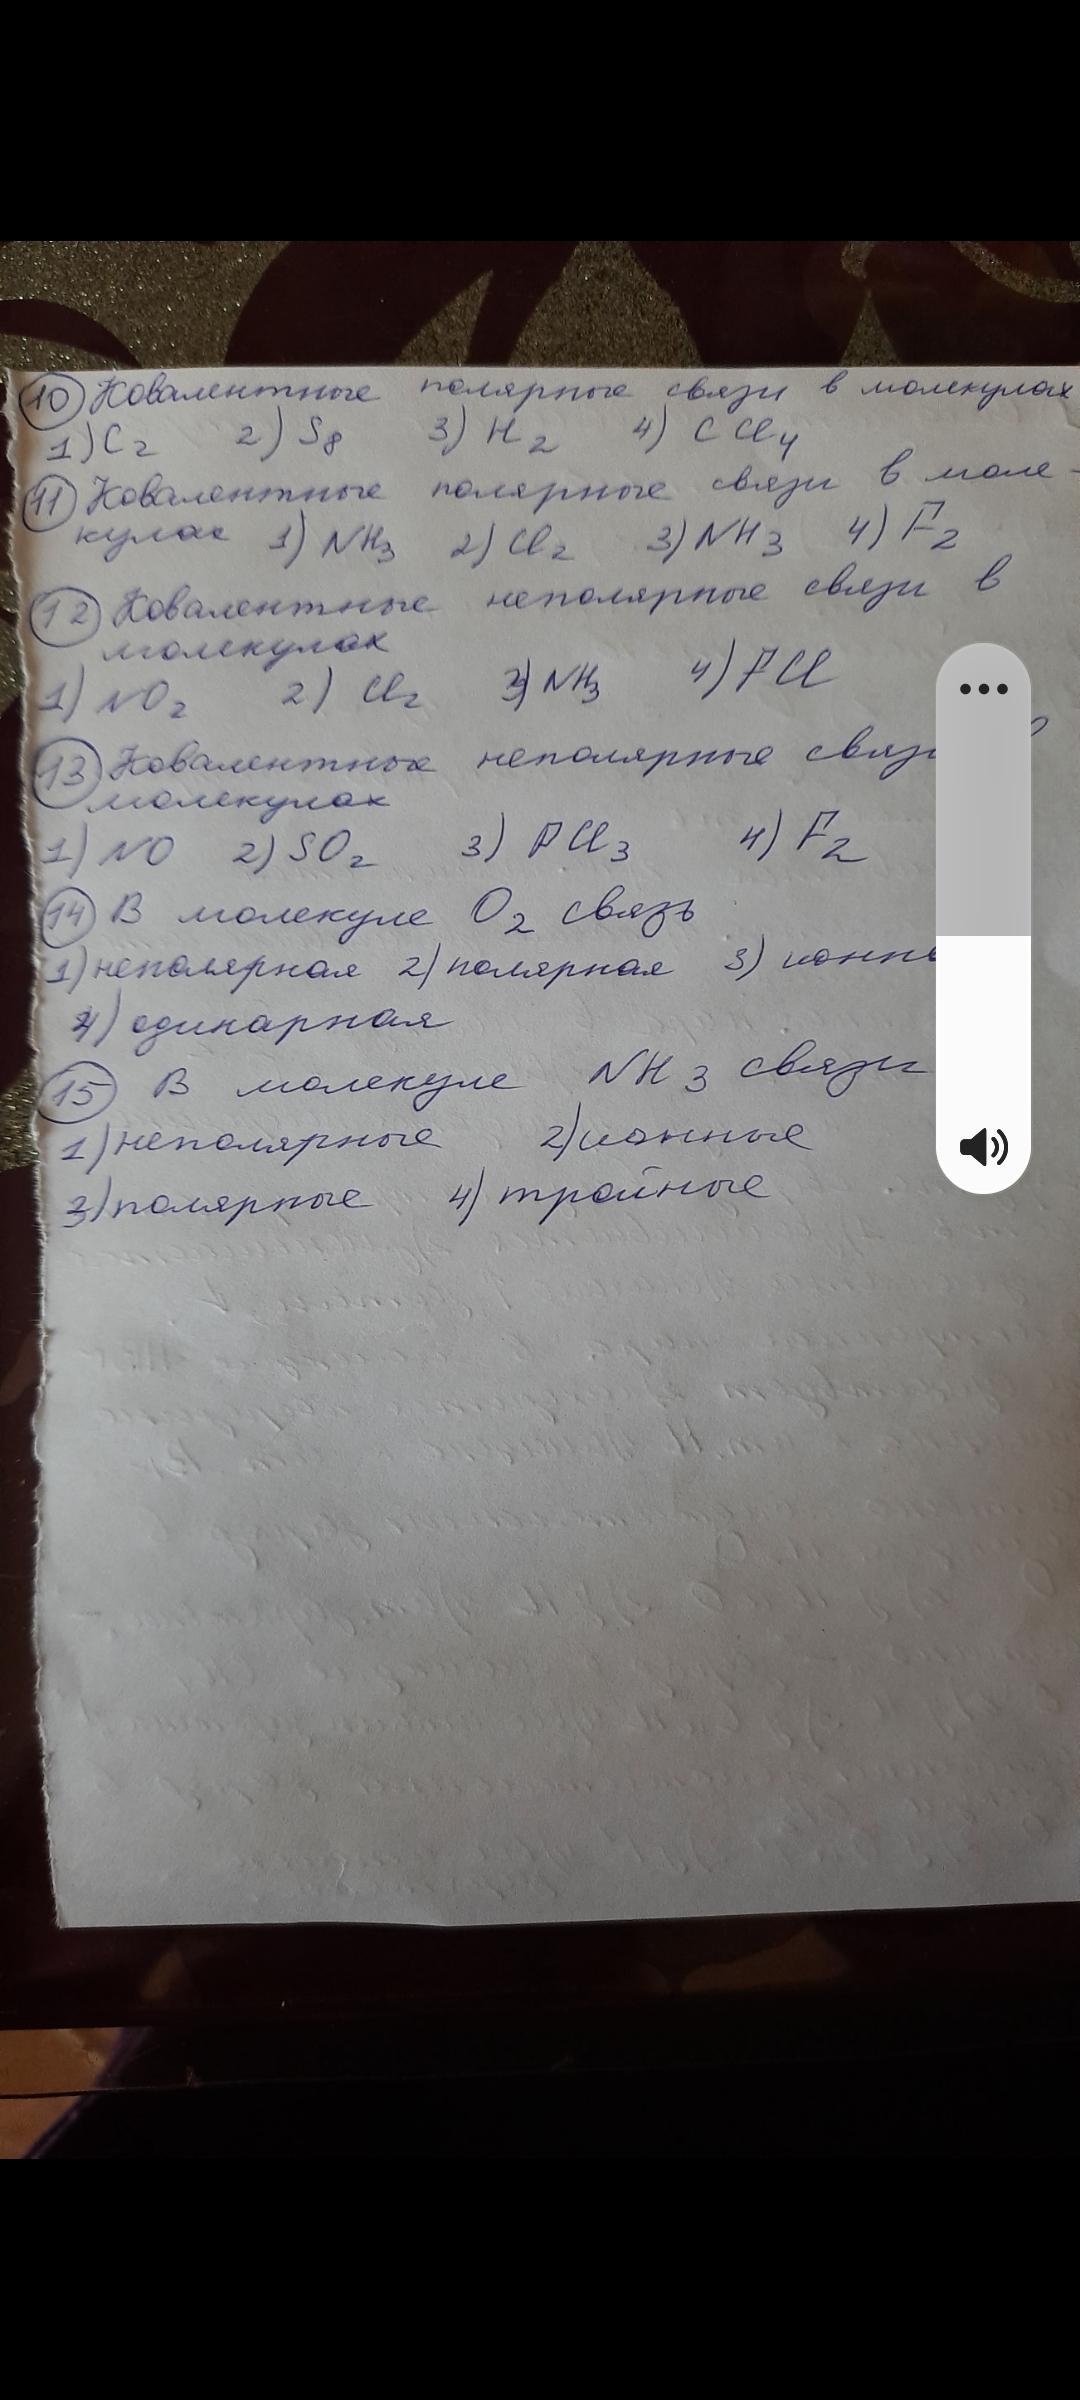 10 Ковалентные полярные связи в молекулах
1) C2 2) S8 3) H2 4) CCl4
11 Ковалентные полярные связи в моле-
кулах 1) NH3 2) Cl2 3) NH3 4) F2
12 Ковалентные неполярные связи в
молекулах
1) NO2 2) Cl2 3) NH3 4) FCl
13 Ковалентные неполярные связи
молекулах
1) NO 2) SO2 3) PCl3 4) F2
14 В молекуле O2 связь
1) неполярная 2) полярная 3)
4) одинарная
15 В молекуле NH3 связи
1) неполярные 2) ионные
3) полярные 4) тройные